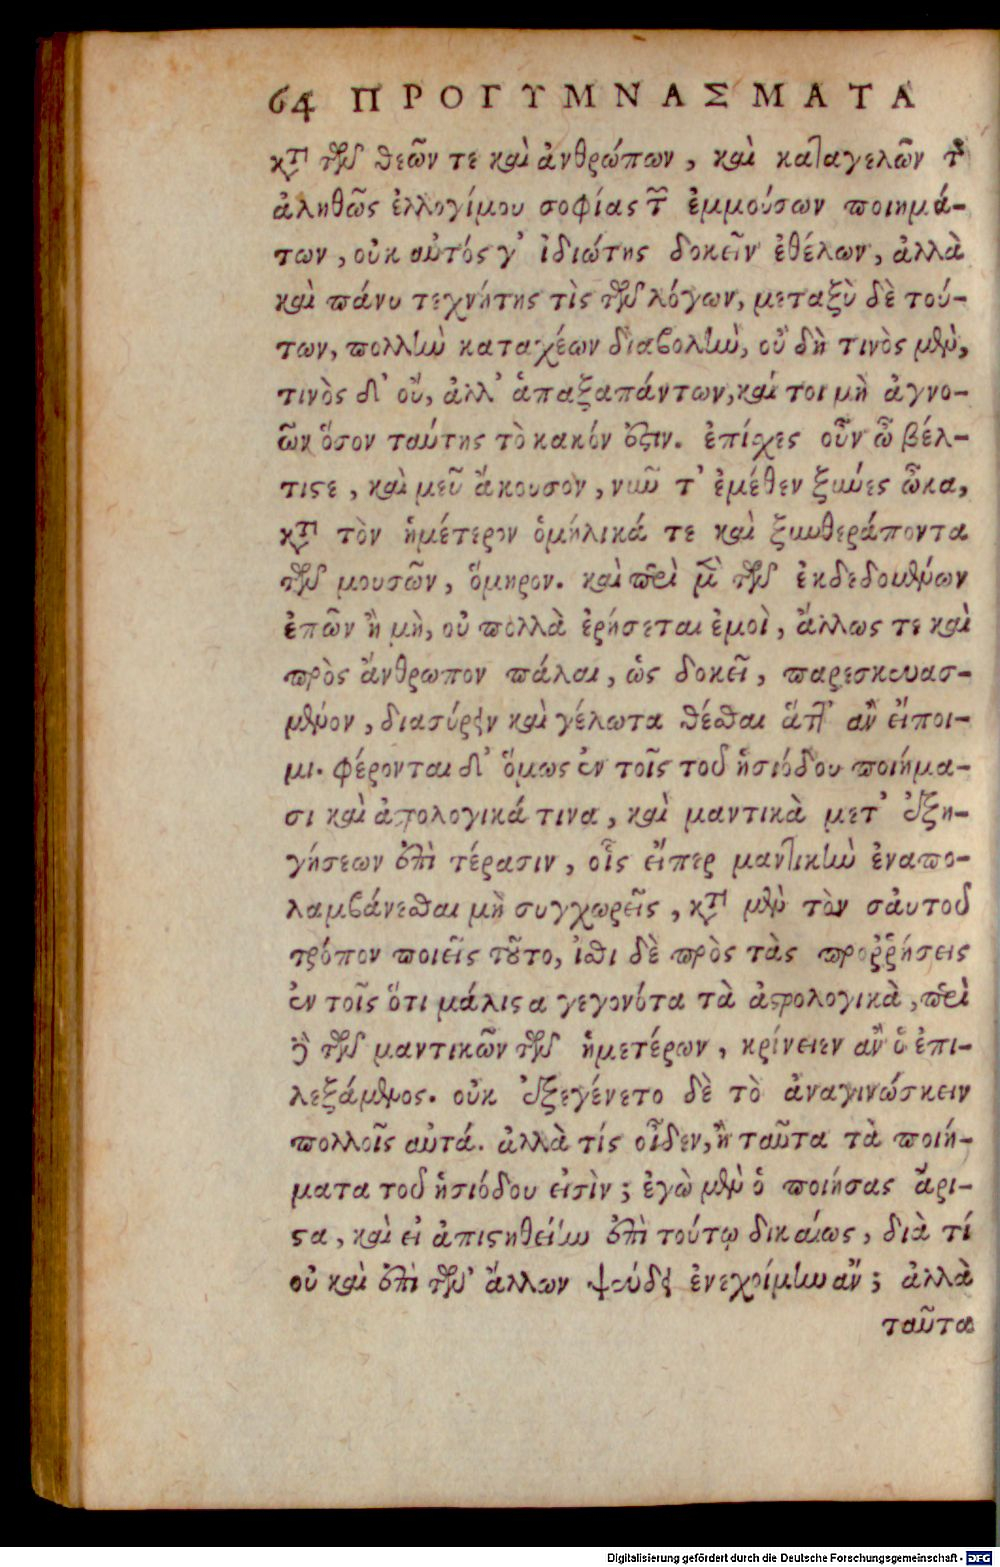 64 ΠΡΟΓΥΜΝΑΣΜΑΤΑ
κατὰ τῶν θεῶν τε καὶ ἀνθρώπων, καὶ καταγελῶν τῆς
ἀληθῶς ἐλλογίμου σοφίας τῶν ἐμμούσων ποιημά-
των, οὐκ αὐτός γ' ἰδιώτης δοκεῖν ἐθέλων, ἀλλὰ
καὶ πάνυ τεχνήτης τὶς τῶν λόγων, μεταξὺ δὲ τού-
των, πολλὴν καταχέων διαβολὴν, οὔ δή τινὸς μὲν,
τινὸς δ' οὔ, ἀλλ' ἁπαξαπάντων, καί τοι μὴ ἀγνο-
ῶν ὅσον ταύτης τὸ κακόν ὅστιν. ἐπίχες οὖν ὦ βέλ-
τιστε, καὶ μεῦ ἄκουσον, νῦν τ' ἐμέθεν ξυνές ὦκα,
κατὰ τὸν ἡμέτερον ὁμήλικά τε καὶ ξυνθεράποντα
τῶν μουσῶν, ὅμηρον. καὶ περὶ μὲν τῶν ἐκδεδομένων
ἐπῶν ἢ μὴ, οὐ πολλὰ ἐρήσεται ἐμοὶ, ἄλλως τε καὶ
πρὸς ἄνθρωπον πάλαι, ὡς δοκεῖ, παρεσκευασ-
μένον, διασύρειν καὶ γέλωτα θέσθαι ἅττ' ἂν εἴποι-
μι. φέρονται δ' ὅμως ἐν τοῖς τοῦ ἡσιόδου ποιήμα-
σι καὶ ἀστρολογικά τινα, καὶ μαντικὰ μετ' ἐξη-
γήσεων ἐπὶ τέρασιν, οἷς εἴπερ μαντικὴν ἐναπο-
λαμβάνεσθαι μὴ συγχωρεῖς, κατὰ μὲν τὸν σαυτοῦ
τρόπον ποιεῖς τοῦτο, ἴσθι δὲ πρὸς τὰς προῤῥήσεις
ἐν τοῖς ὅτι μάλιστα γεγονότα τὰ ἀστρολογικὰ, περὶ
δὲ τῶν μαντικῶν τῶν ἡμετέρων, κρίνειεν ἂν ὁ ἐπι-
λεξάμενος. οὐκ ἐξεγένετο δὲ τὸ ἀναγινώσκειν
πολλοῖς αὐτά. ἀλλὰ τίς οἶδεν, ἢ ταῦτα τὰ ποιή-
ματα τοῦ ἡσιόδου εἰσὶν; ἐγὼ μὲν ὁ ποιήσας ἄρι-
στα, καὶ εἰ ἀπιστηθείην ἐπὶ τούτῳ δικαίως, διὰ τί
οὐ καὶ ἐπὶ τῶν ἄλλων ψεύδει ἐνεχοίμην ἄν; ἀλλὰ
ταῦτα
Digitalisierung gefördert durch die Deutsche Forschungsgemeinschaft - DFG